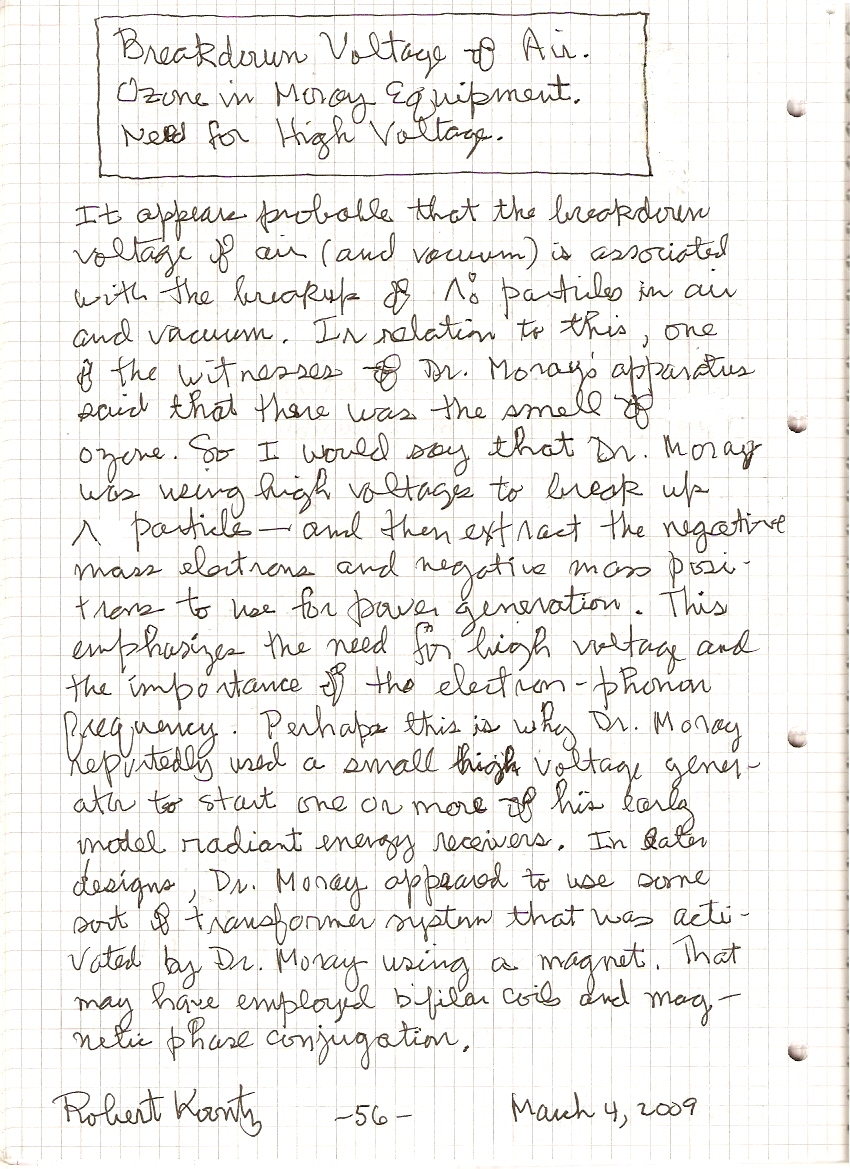 Breakdown Voltage of Air.
Ozone in Moray Equipment.
Need for High Voltage.
It appears probable that the breakdown
voltage of air (and vacuum) is associated
with the breakup of particles in air
and vacuum. In relation to this, one
of the witnesses of Dr. Moray's apparatus
said that there was the smell of
ozone. So I would say that Dr. Moray
was using high voltages to break up
Λ particles — and then extract the negative
mass electrons and negative mass posi-
trons to use for power generation. This
emphasizes the need for high voltage and
the importance of the electron-phonon
frequency. Perhaps this is why Dr. Moray
reportedly used a small high voltage gener-
ator to start one or more of his early
model radiant energy receivers. In later
designs, Dr. Moray appeared to use some
sort of transformer system that was acti-
vated by Dr. Moray using a magnet. That
may have employed bifilar coils and mag-
netic phase conjugation.
Robert Koontz -56- March 4, 2009